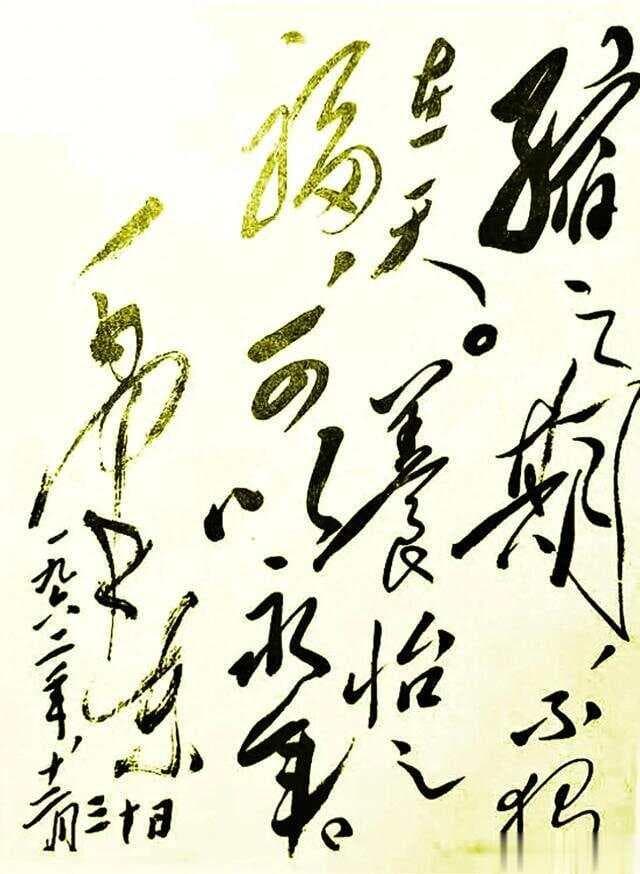 縮之期、不独
在天。養怡之
福、可以永年。
毛泽东
一九六二年、十二月三十日